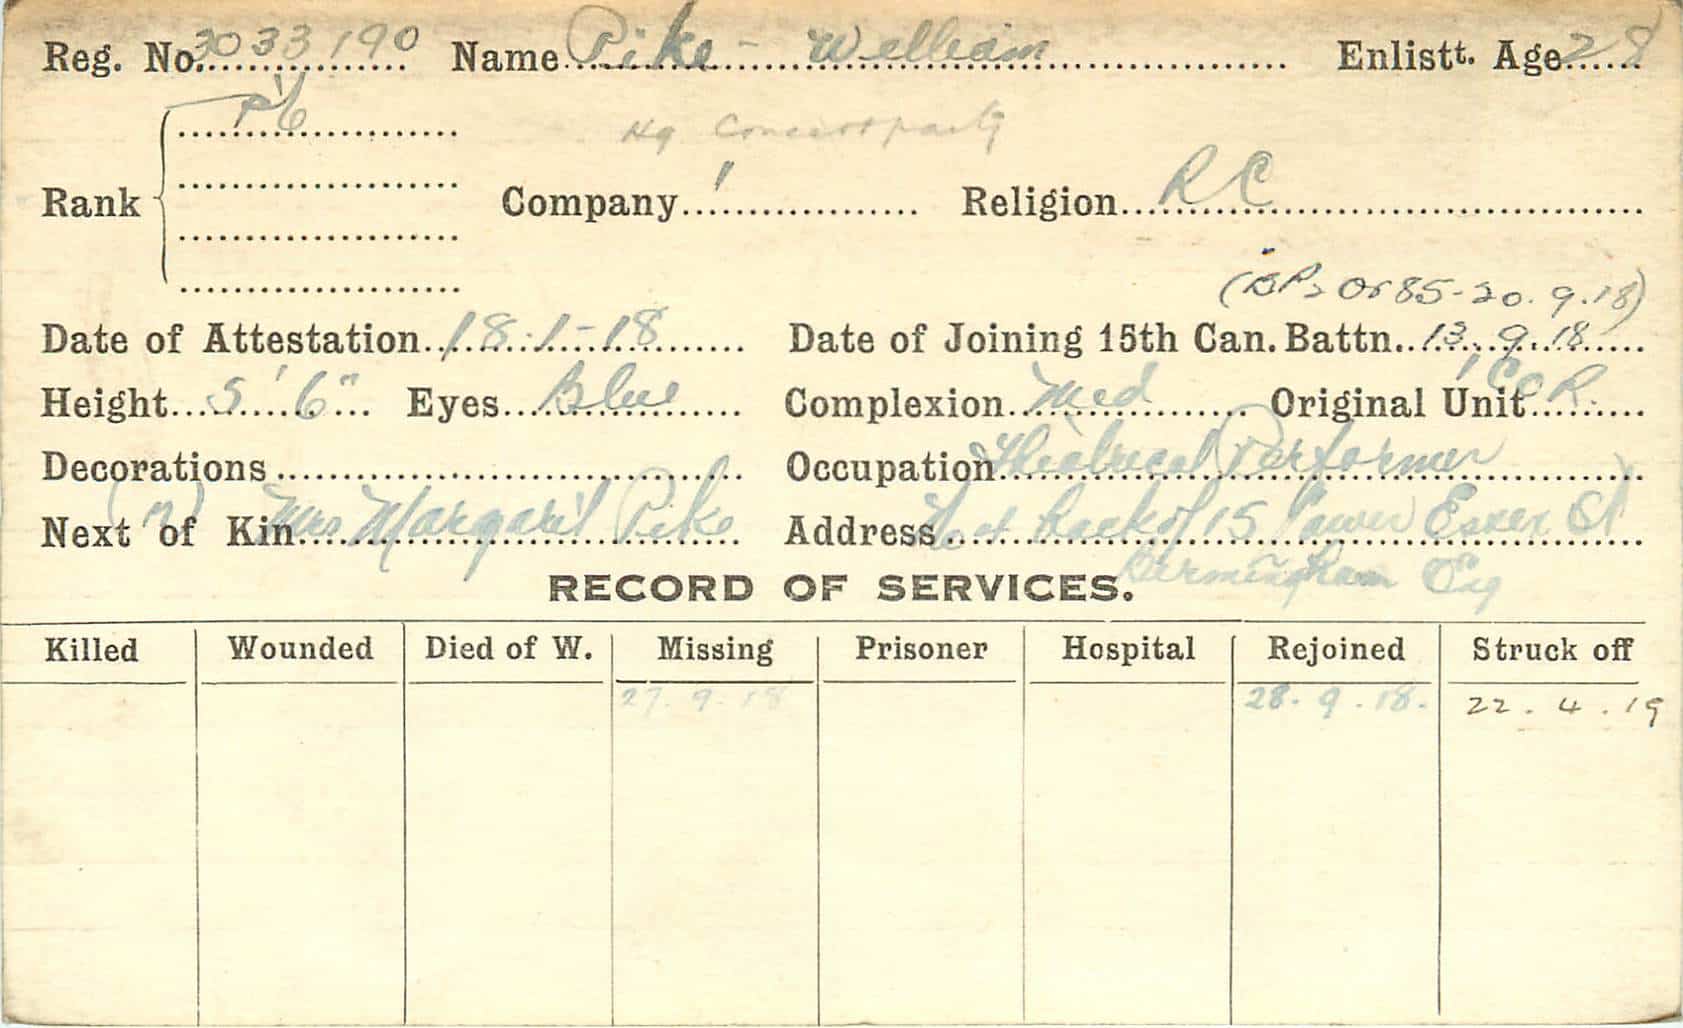 Reg. No. 3033190 Name Pike - William Enlistt. Age 28
Pte
Hq Concert party
Rank Company 1 Religion RC
20.9.18)
Date of Attestation 18-1-18 Date of Joining 15th Can. Battn. 13.9.18
Height 5'6" Eyes Blue Complexion Med Original Unit 1 C O R.
Decorations Occupation Theatrical Performer
Next of Kin (M) Mrs Margaret Pike Address back of 15 Lower Essex St
Birmingham Eng
RECORD OF SERVICES.
Killed Wounded Died of W. Missing Prisoner Hospital Rejoined Struck off
27.9.18 28.9.18. 22.4.19